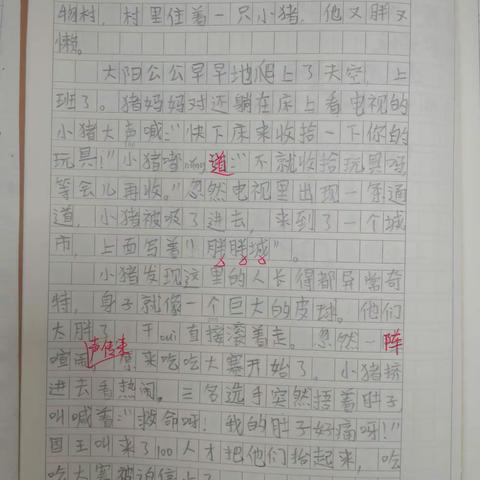 物村，村里住着一只小猪，他又胖又
懒。
太阳公公早早地爬上了天空，上
班了。猪妈妈对还躺在床上看电视的
小猪大声喊：“快下床来收拾一下你的
玩具！”小猪嘟nang道：“不就收拾玩具吗
等会儿再收。”忽然电视里出现一条通
道，小猪被吸了进去，来到了一个城
市，上面写着“胖胖城”。
小猪发现这里的人长得都异常奇
特，身子就像一个巨大的皮球。他们
太胖了，干cui直接滚着走。忽然一阵
喧闹声传来 原来吃吃大赛开始了，小猪挤
进去看热闹。三名选手突然捂着肚子
叫喊着：“救命呀！我的肚子好痛呀！”
国王叫来了100人才把他们抬起来，吃
吃大赛被迫停止了